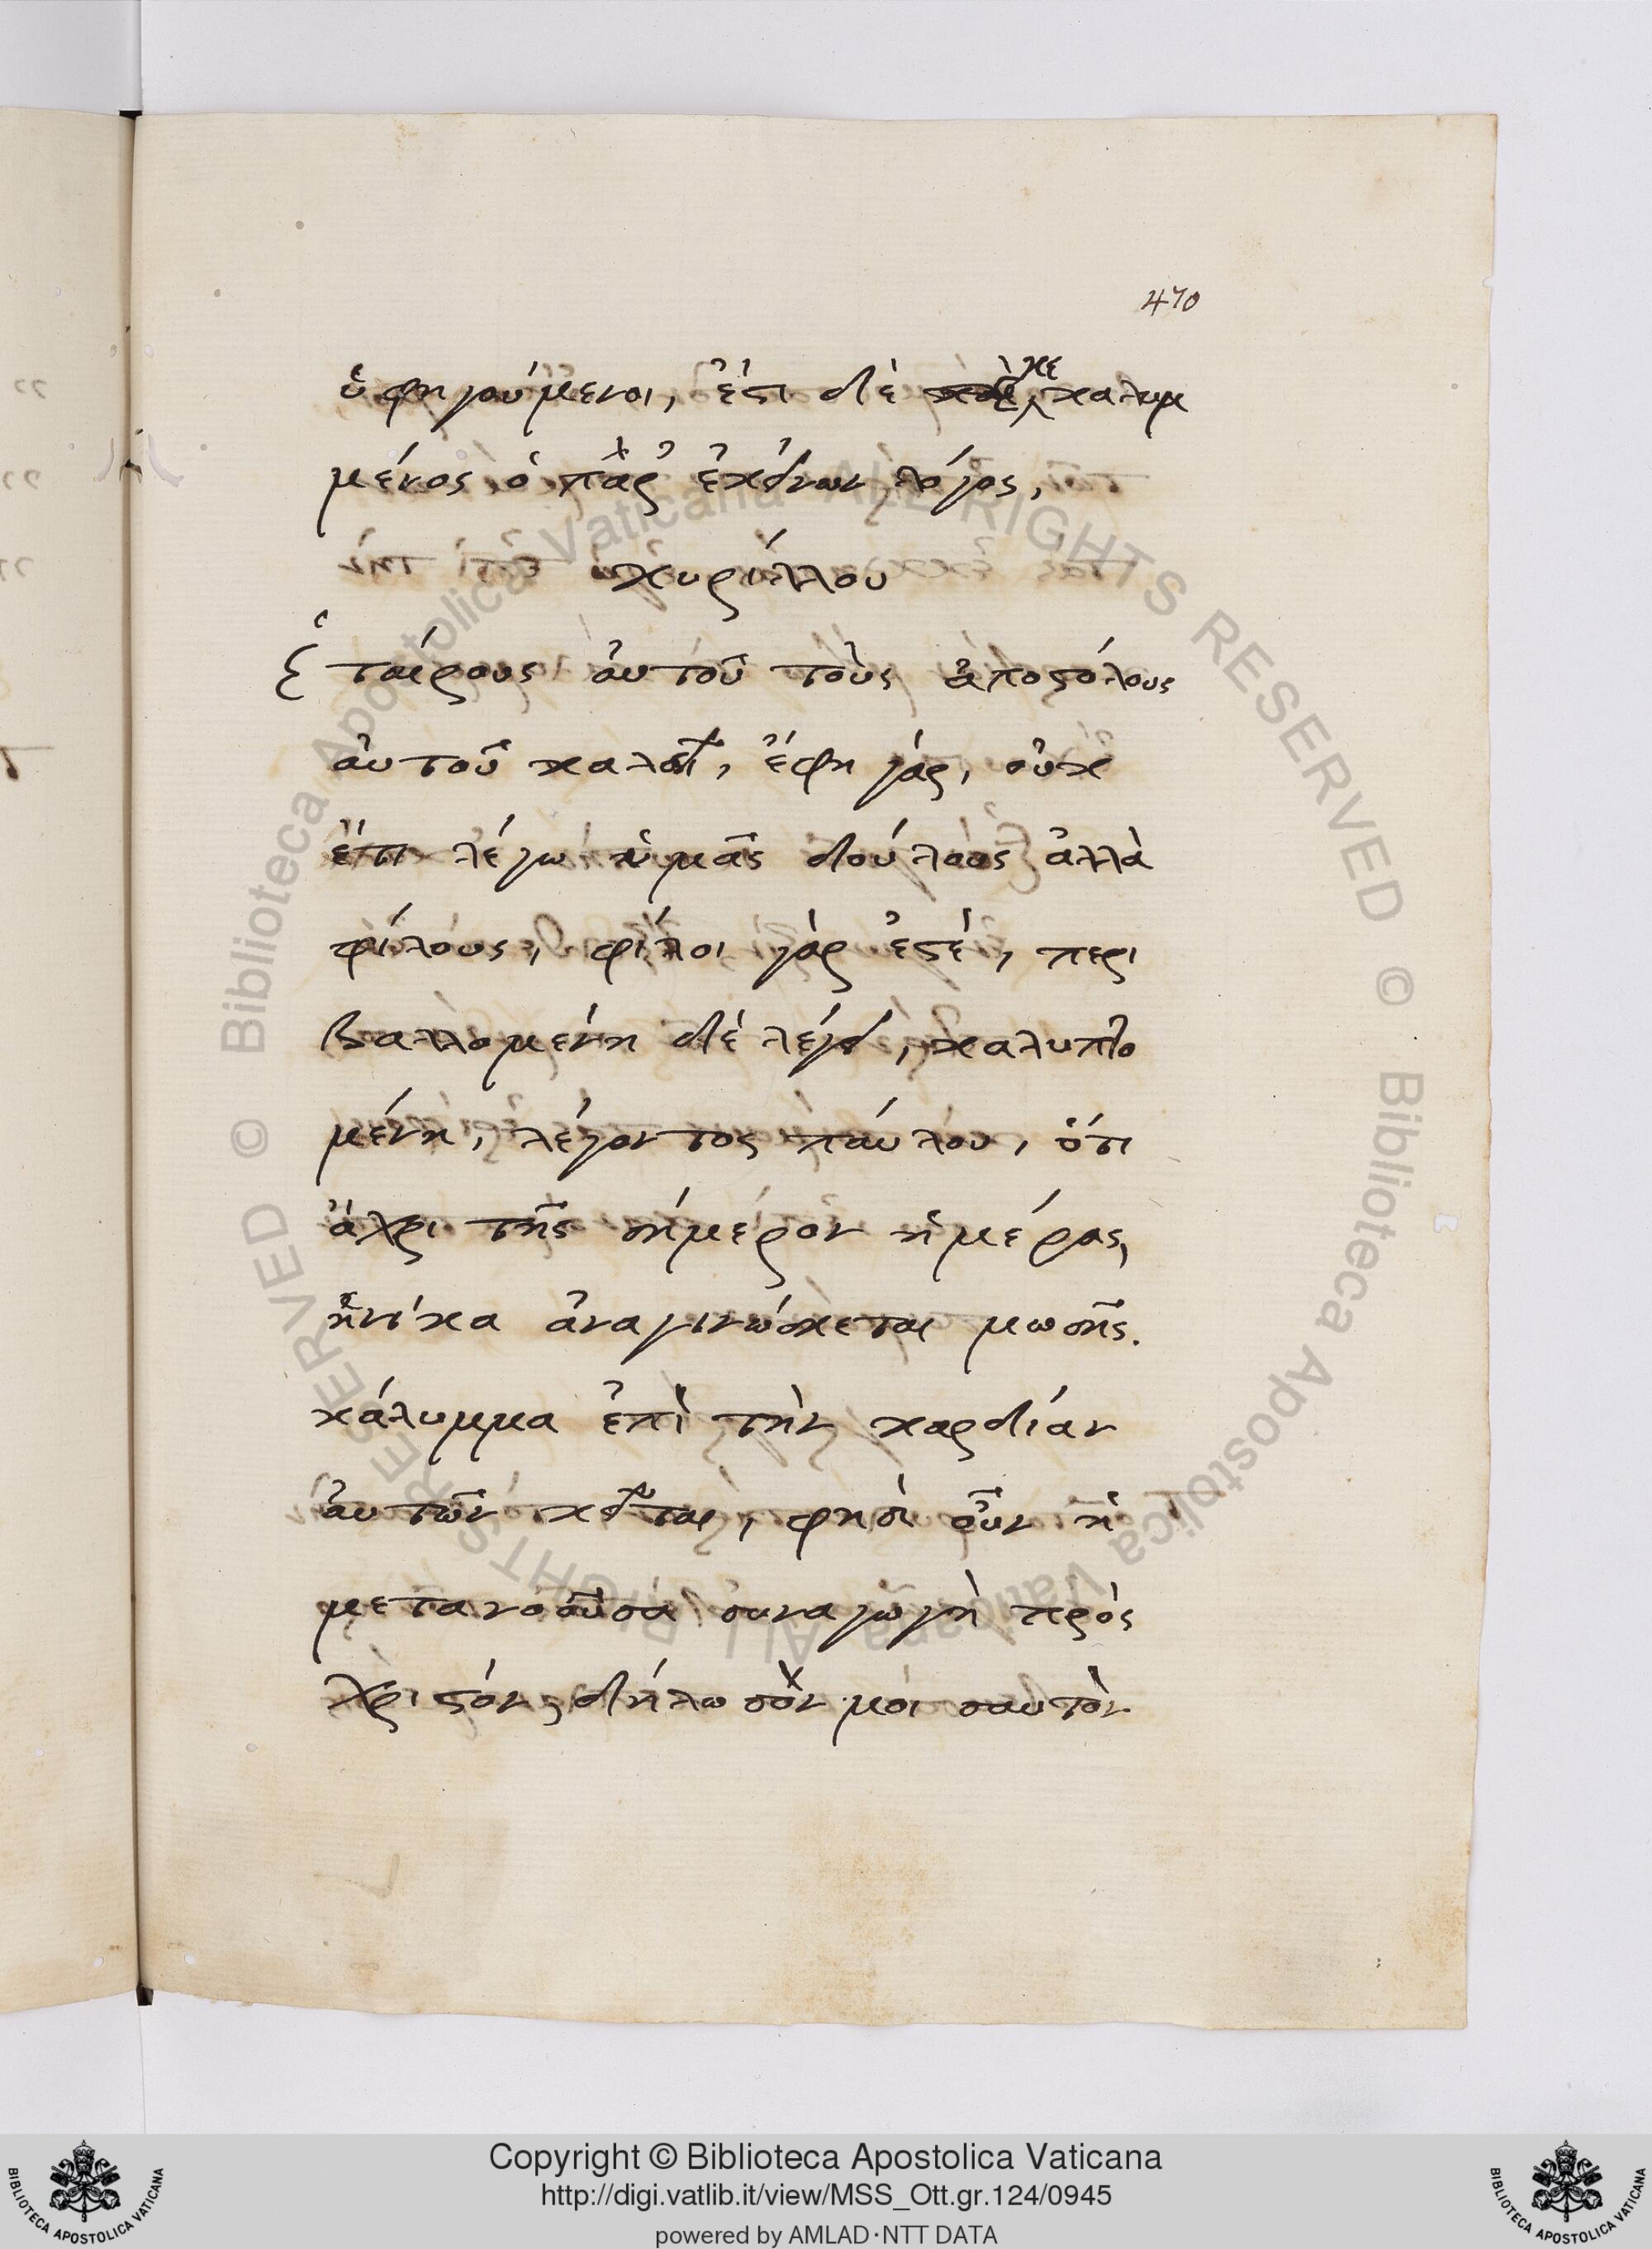 470
ὑφηγούμενοι, ἔστι δὲ κεκαλυμ
μένος ὁ παρ' ἐκείνων λόγος,
κυρίλλου
ἑταίρους αὐτοῦ τοὺς ἀποστόλους
αὐτοῦ καλεῖ, ἔφη γάρ, οὐκ
ἔτι λέγω ὑμᾶς δούλους ἀλλὰ
φίλους, φίλοι γάρ ἐστέ, περι
βαλλομένη δὲ λέγει, καλυπτο
μένη, λέγοντος παύλου, ὅτι
ἄχρι τῆς σήμερον ἡμέρας,
ἡνίκα ἀναγινώσκεται μωσῆς.
κάλυμμα ἐπὶ τὴν καρδίαν
αὐτῶν κεῖται, φησὶ οὖν ἡ
μετανοοῦσα συναγωγὴ πρὸς
χριστόν, δήλωσόν μοι σαυτὸν
Copyright © Biblioteca Apostolica Vaticana
http://digi.vatlib.it/view/MSS_Ott.gr.124/0945
powered by AMLAD·NTT DATA
BIBLIOTECA APOSTOLICA VATICANA
BIBLIOTECA APOSTOLICA VATICANA
© Biblioteca Apostolica Vaticana ALL RIGHTS RESERVED
© Biblioteca Apostolica Vaticana ALL RIGHTS RESERVED